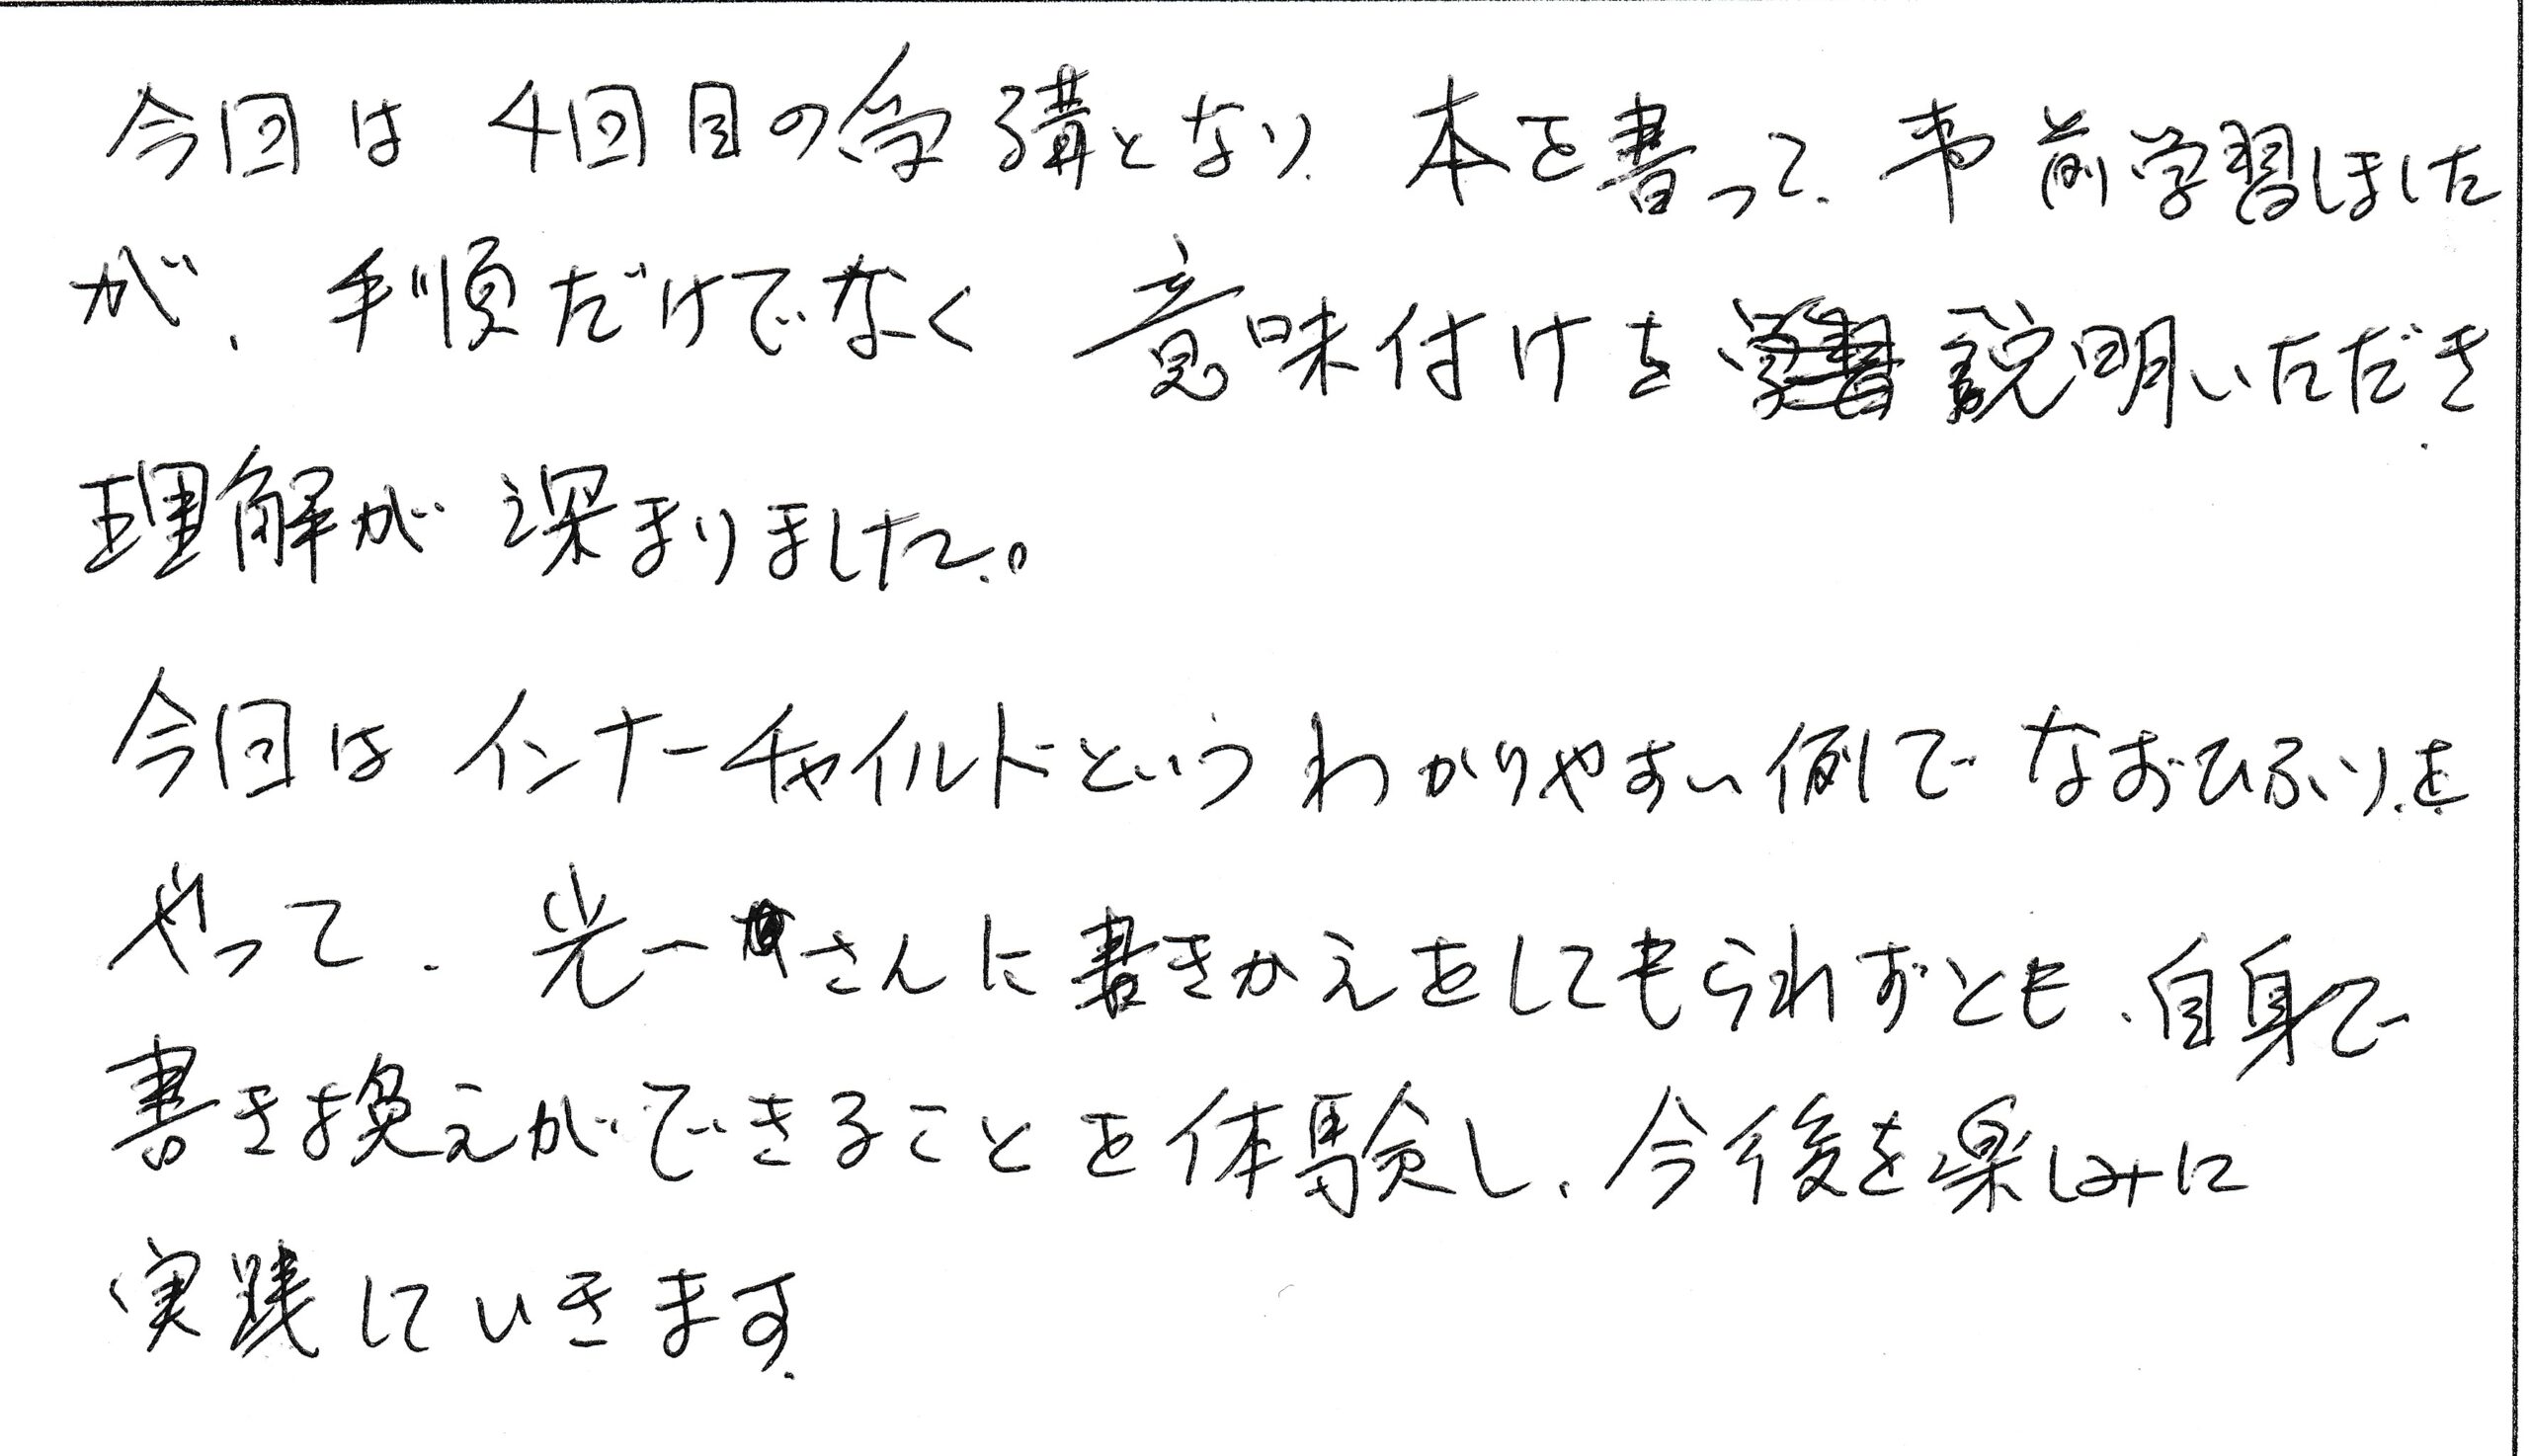 今回は 4回目の受講となり、本を書って、事前学習しました
が、手順だけでなく 意味付けを 説明いただき、
理解が深まりました。
今回は インナーチャイルドという わかりやすい例で なおひふりを
やって、光一さんに書きかえをしてもらわれずとも、自身で
書き換えができることを体験し、今後を楽しみに
実践していきます。